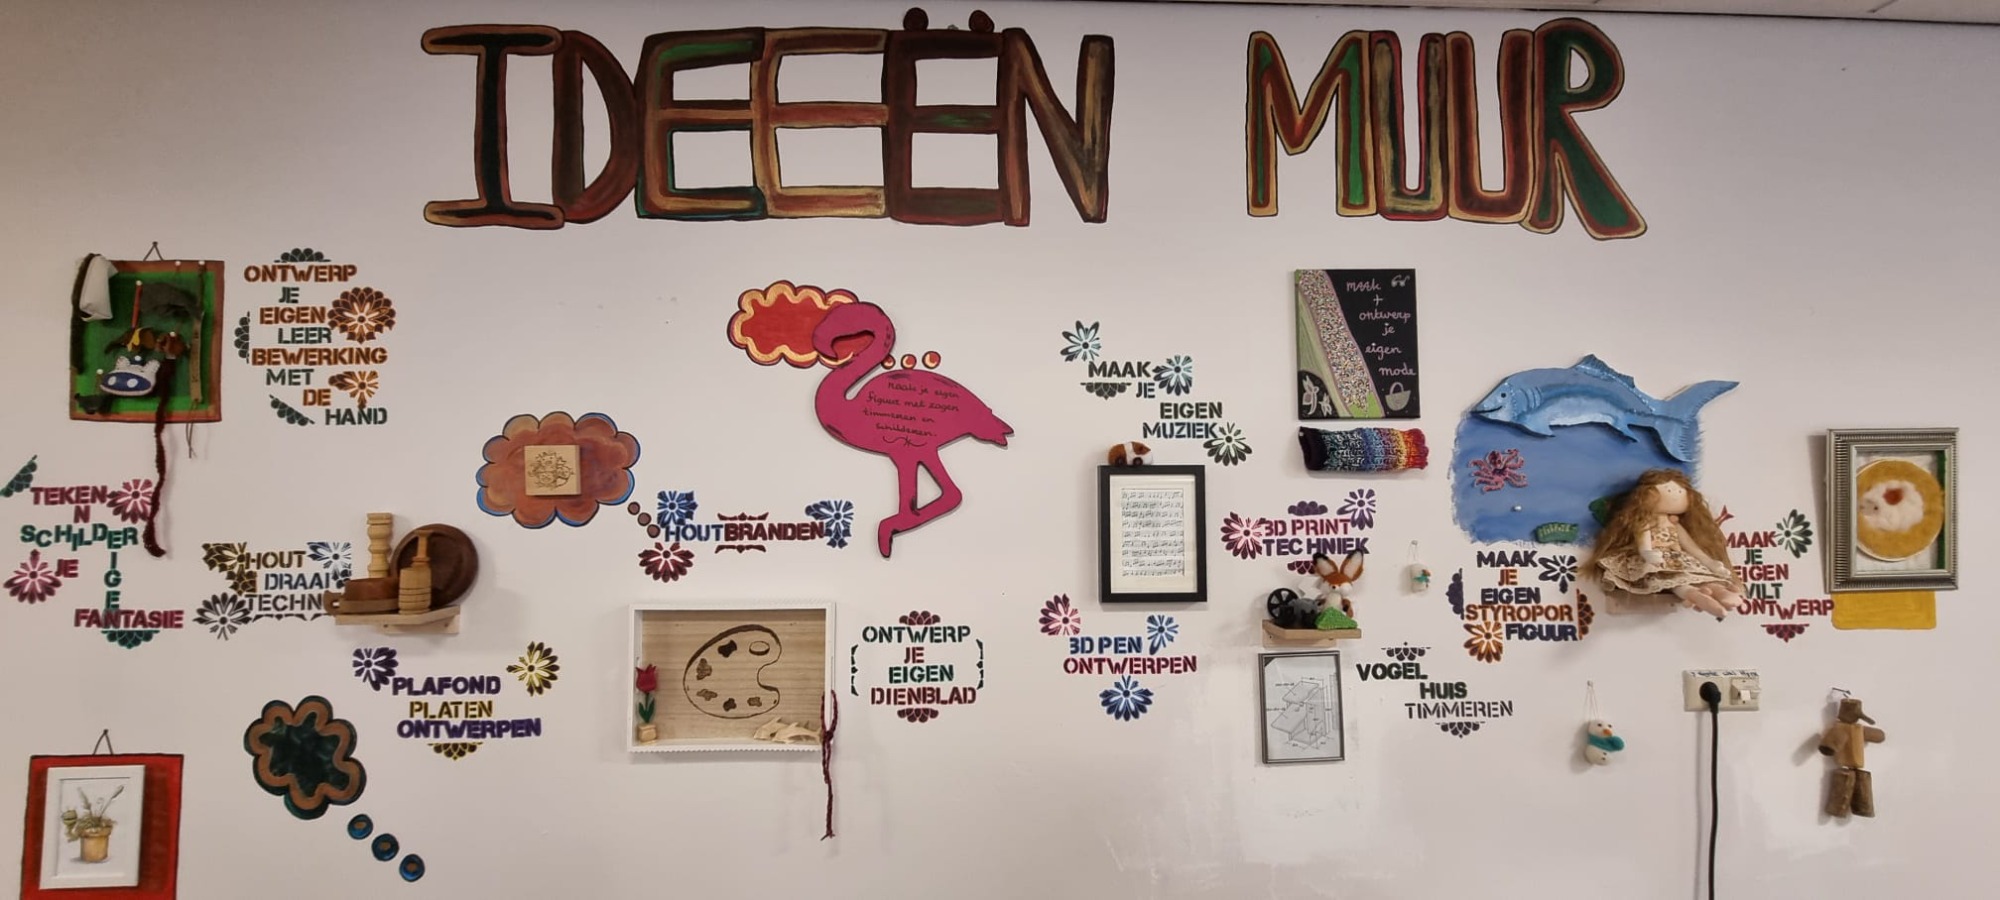 IDEEËN MUUR
ONTWERP
JE
EIGEN
LEER
BEWERKING
MET
DE
HAND
TEKEN
N
SCHILDER
JE
EIGE
FANTASIE
HOUT
DRAAI
TECHN
PLAFOND
PLATEN
ONTWERPEN
HOUTBRANDEN
Maak je eigen
figuur met zagen
timmeren en
schilderen.
ONTWERP
JE
EIGEN
DIENBLAD
MAAK
JE
EIGEN
MUZIEK
maak
+
ontwerp
je
eigen
mode
3D PRINT
TECHNIEK
3D PEN
ONTWERPEN
VOGEL
HUIS
TIMMEREN
MAAK
JE
EIGEN
STYROPOR
FIGUUR
MAAK
JE
EIGEN
VILT
ONTWERP